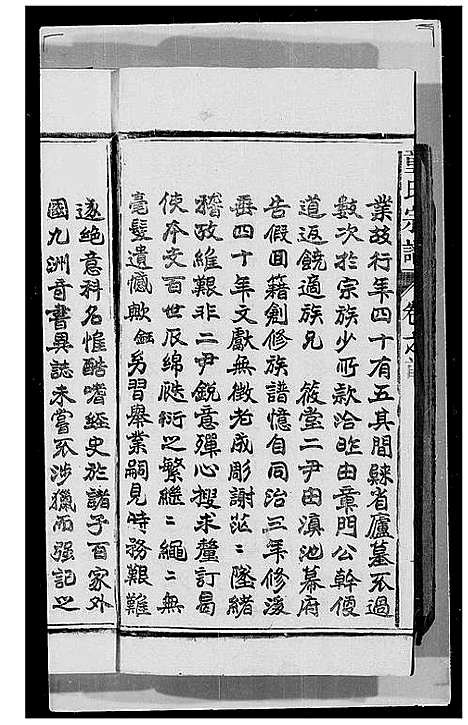 章氏宗譜
卷之首
業故行年四十有五其間縣省廬墓不過
數次於宗族少所款洽昨由章門公幹便
道返饒適族兄　筱堂二尹由滇池幕府
告假回籍創修族譜憶自同治三年修後
垂四十年文獻無徵老成彫謝茫〻墜緒
稽攷維艱非二尹銳意殫心搜求釐訂曷
使本支百世瓜綿瓞衍之繁繼〻繩〻無
毫髮遺憾歟鈺幼習舉業嗣見時務艱難
遂絕意科名惟酷嗜經史於諸子百家外
國九洲奇書異誌未嘗不涉獵而强記之